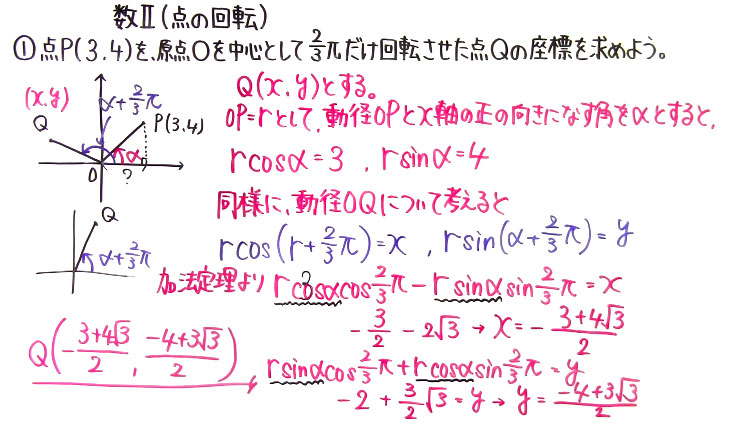 数Ⅱ(点の回転)
①点P(3,4)を、原点Oを中心として2/3πだけ回転させた点Qの座標を求めよう。
(x,y)
Q
α+2/3π
P(3,4)
α
O
?
Q
α+2/3π
Q(x,y)とする。
OP=rとして、動径OPとx軸の正の向きになす角をαとすると、
rcosα=3 , rsinα=4
同様に、動径OQについて考えると
rcos(r+2/3π)=x , rsin(α+2/3π)=y
加法定理より rcosαcos2/3π-rsinαsin2/3π=x
-3/2-2√3→x=-(3+4√3)/2
rsinαcos2/3π+rcosαsin2/3π=y
-2+3/2√3=y→y=(-4+3√3)/2
Q(-(3+4√3)/2,(-4+3√3)/2)